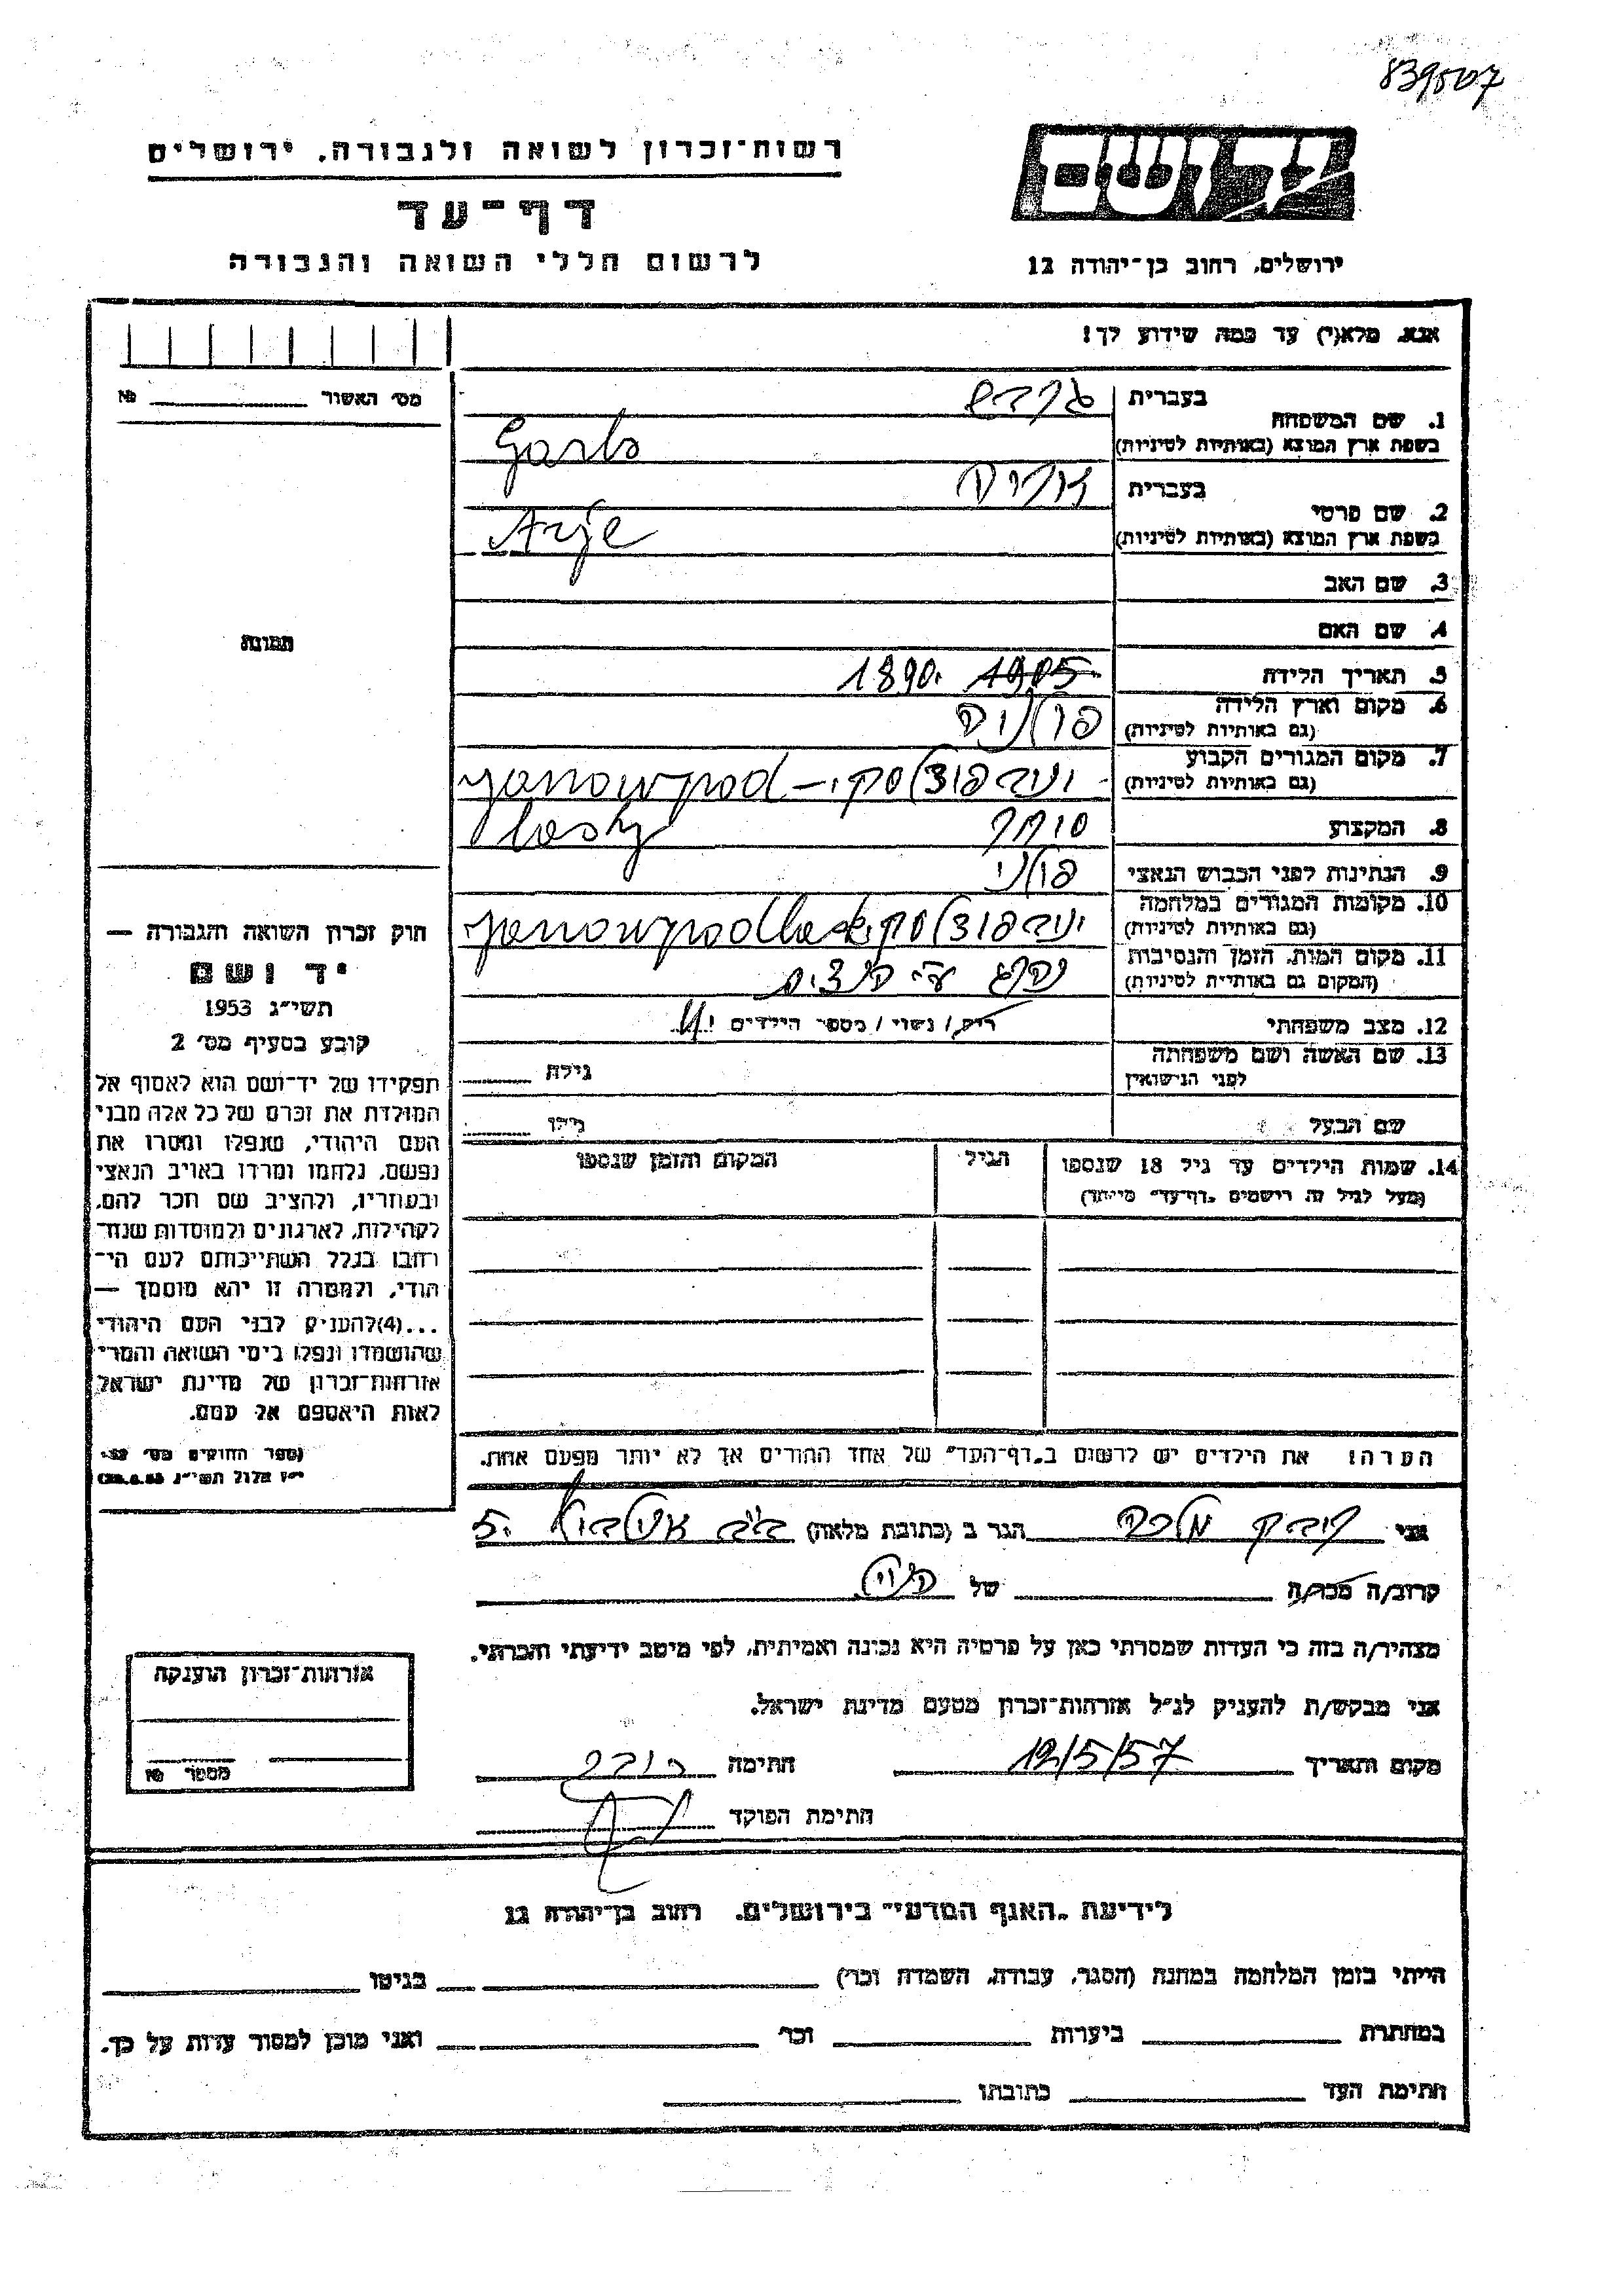 839507
רשות־זכרון לשואה ולגבורה. ירושלים
דף־עד
לרשום חללי השואה והגבורה
יד ושם
ירושלים, רחוב בן־יהודה 12
אנא, מלא(י) עד כמה שידוע לך!
מס׳ האשור № 
1. שם המשפחה
בעברית
בשפת ארץ המוצא (באותיות לטיניות)
2. שם פרטי
בעברית
בשפת ארץ המוצא (באותיות לטיניות) Arje
3. שם האב
4. שם האם
5. תאריך הלידה 1905 1890.
6. מקום וארץ הלידה
(גם באותיות לטיניות) פולניה
7. מקום המגורים הקבוע
(גם באותיות לטיניות)
8. המקצוע סוחר
9. הנתינות לפני הכבוש הנאצי פולני
10. מקומות המגורים במלחמה
(גם באותיות לטיניות)
11. מקום המות, הזמן והנסיבות
(המקום גם באותיות לטיניות) נהרג ע״י
12. מצב משפחתי רווק / נשוי / מספר הילדים
13. שם האשה ושם משפחתה
לפני הנישואין גילה
שם הבעל גילו
14. שמות הילדים עד גיל 18 שנספו
(מעל לגיל זה רישמים ״דף־עד״ מיוחד)
הגיל
המקום והזמן שנספו
הערה: את הילדים יש לרשום ב״דף־העד״ של אחד ההורים אך לא יותר מפעם אחת.
תמונה
חוק זכרון השואה והגבורה —
יד ושם
תשי״ג 1953
קובע בסעיף מס׳ 2
תפקידו של יד־ושם הוא לאסוף אל
המולדת את זכרם של כל אלה מבני
העם היהודי, שנפלו ומסרו את
נפשם, נלחמו ומרדו באויב הנאצי
ובעוזריו, ולהציב שם וזכר להם,
לקהילות, לארגונים ולמוסדות שנח־
רבו בגלל השתייכותם לעם הי־
הודי, ולמטרה זו יהא מוסמך —
...(4) להעניק לבני העם היהודי
שהושמדו ונפלו בימי השואה והמרי
אזרחות־זכרון של מדינת ישראל
לאות היאספם אל עמם.
(ספר החוקים מס׳ 132
י״ז אלול תשי״ג 28.8.53)
אני הגר ב (כתובת מלאה) 5.
קרוב/ה מכר/ה של
מצהיר/ה בזה כי העדות שמסרתי כאן על פרטיה היא נכונה ואמיתית, לפי מיטב ידיעתי והכרתי.
אני מבקש/ת להעניק לנ״ל אזרחות־זכרון מטעם מדינת ישראל.
מקום ותאריך 12/5/57 חתימה
חתימת הפוקד
אזרחות־זכרון הוענקה
מספר №
לידיעת ״האגף המדעי״ בירושלים. רחוב בן־יהודה 12
הייתי בזמן המלחמה במחנה (הסגר, עבודה, השמדה וכו׳) בגיטו
במחתרת ביערות וכו׳ ואני מוכן למסור עדות על כך.
חתימת העד כתובתו